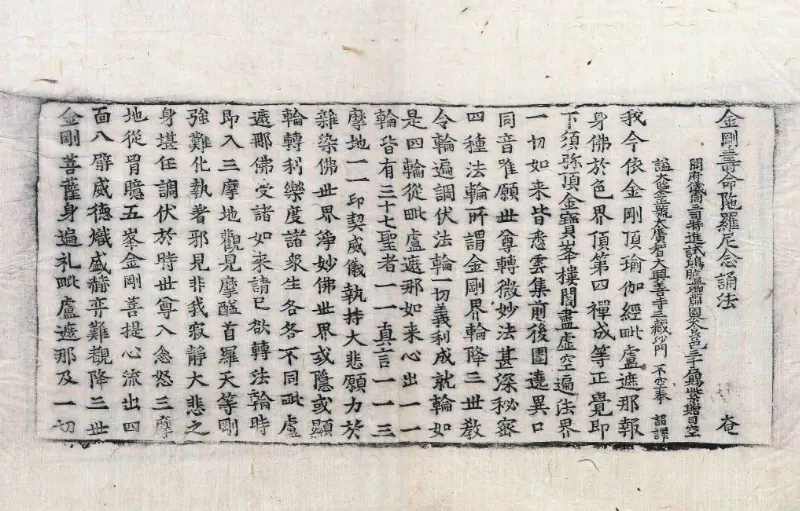 金剛壽命陁羅尼念誦法 庵
開府儀同三司特進試鴻臚卿肅國公食邑三千戶賜紫贈司空
謚大鑒正號大廣智大興善寺三藏沙門不空奉 詔譯
我今依金剛頂瑜伽經毗盧遮那報
身佛於色界頂第四禪成等正覺即
下須弥頂金寶峯樓閣盡虛空遍法界
一切如来皆悉雲集前後圍遶異口
同音唯願世尊轉微妙法甚深秘密
四種法輪所謂金剛界輪降三世教
令輪遍調伏法輪一切義利成就輪如
是四輪從毗盧遮那如来心出一一
輪皆有三十七聖者一一真言一一三
摩地一一印契威儀執持大悲願力於
雜染佛世界淨妙佛世界或隱或顯
輪轉利樂度諸衆生各各不同毗盧
遮那佛受諸如来請已欲轉法輪時
即入三摩地觀見摩醯首羅天等剛
強難化執著邪見非我寂靜大悲之
身堪任調伏於時世尊入忿怒三摩
地從胃臆五峯金剛菩提心流出四
面八臂威德熾盛赫弈難觀降三世
金剛菩薩身遍礼毗盧遮那及一切